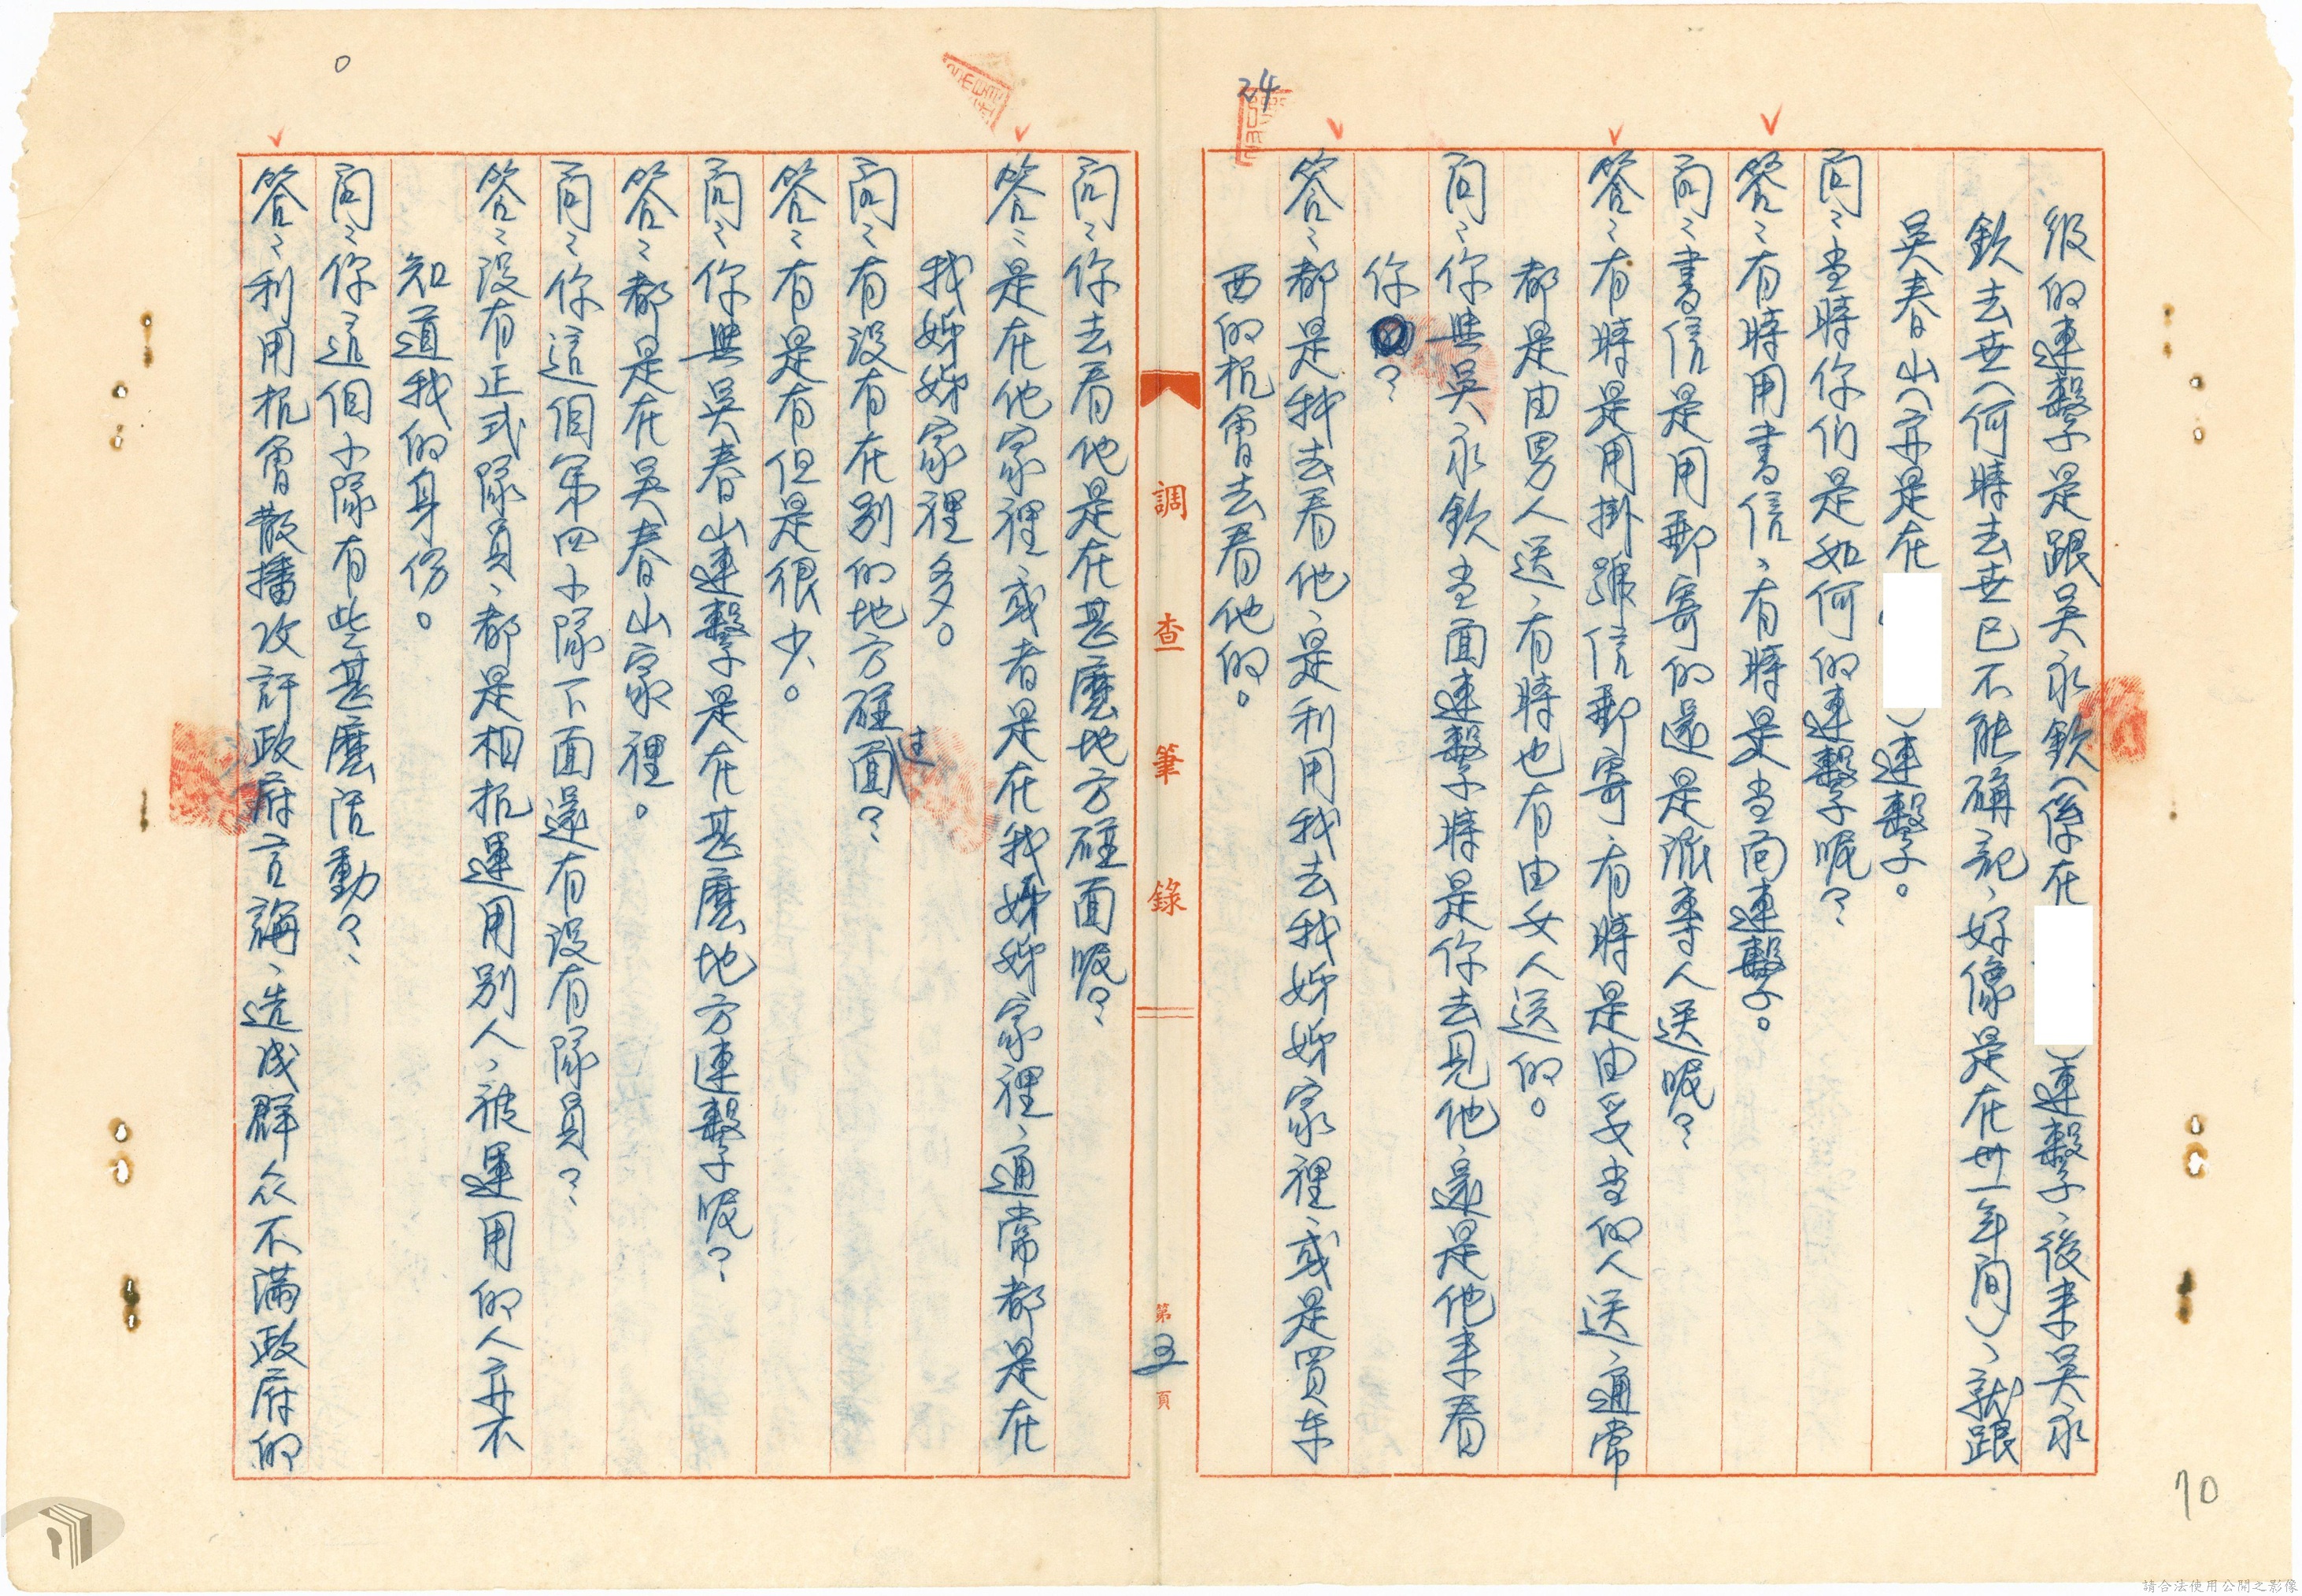 24
級的連繫是跟吳永欽(係在 )連繫、後来吳永
欽去世(何時去世已不能确記、好像是在卅一年间)、就跟
吳春山(亦是在 )連繫。
问：当時你们是如何的連繫呢？
答：有時用書信、有時是当面連繫。
问：書信是用郵寄的還是派專人送呢？
答：有時是用掛號信郵寄、有時是由妥当的人送、通常
都是由男人送、有時也有由女人送的。
问：你與吳永欽当面連繫時是你去見他、還是他来看
你？
答：都是我去看他、是利用我去我姊姊家裡、或是買东
西的机會去看他的。
調查筆錄
第3頁
问：你去看他是在甚麼地方碰面呢？
答：是在他家裡、或者是在我姊姊家裡、通常都是在
我姊姊家裡多。
问：有没有在别的地方碰过面？
答：有是有但是很少。
问：你與吳春山連繫是在甚麼地方連繫呢？
答：都是在吳春山家裡。
问：你這個第四小隊下面還有没有隊員？
答：没有正式隊員、都是相机運用别人、被運用的人并不
知道我的身份。
问：你這個小隊有些甚麼活動？
答：利用机會散播攻訐政府言論、造成群众不滿政府的
70
請合法使用公開之影像